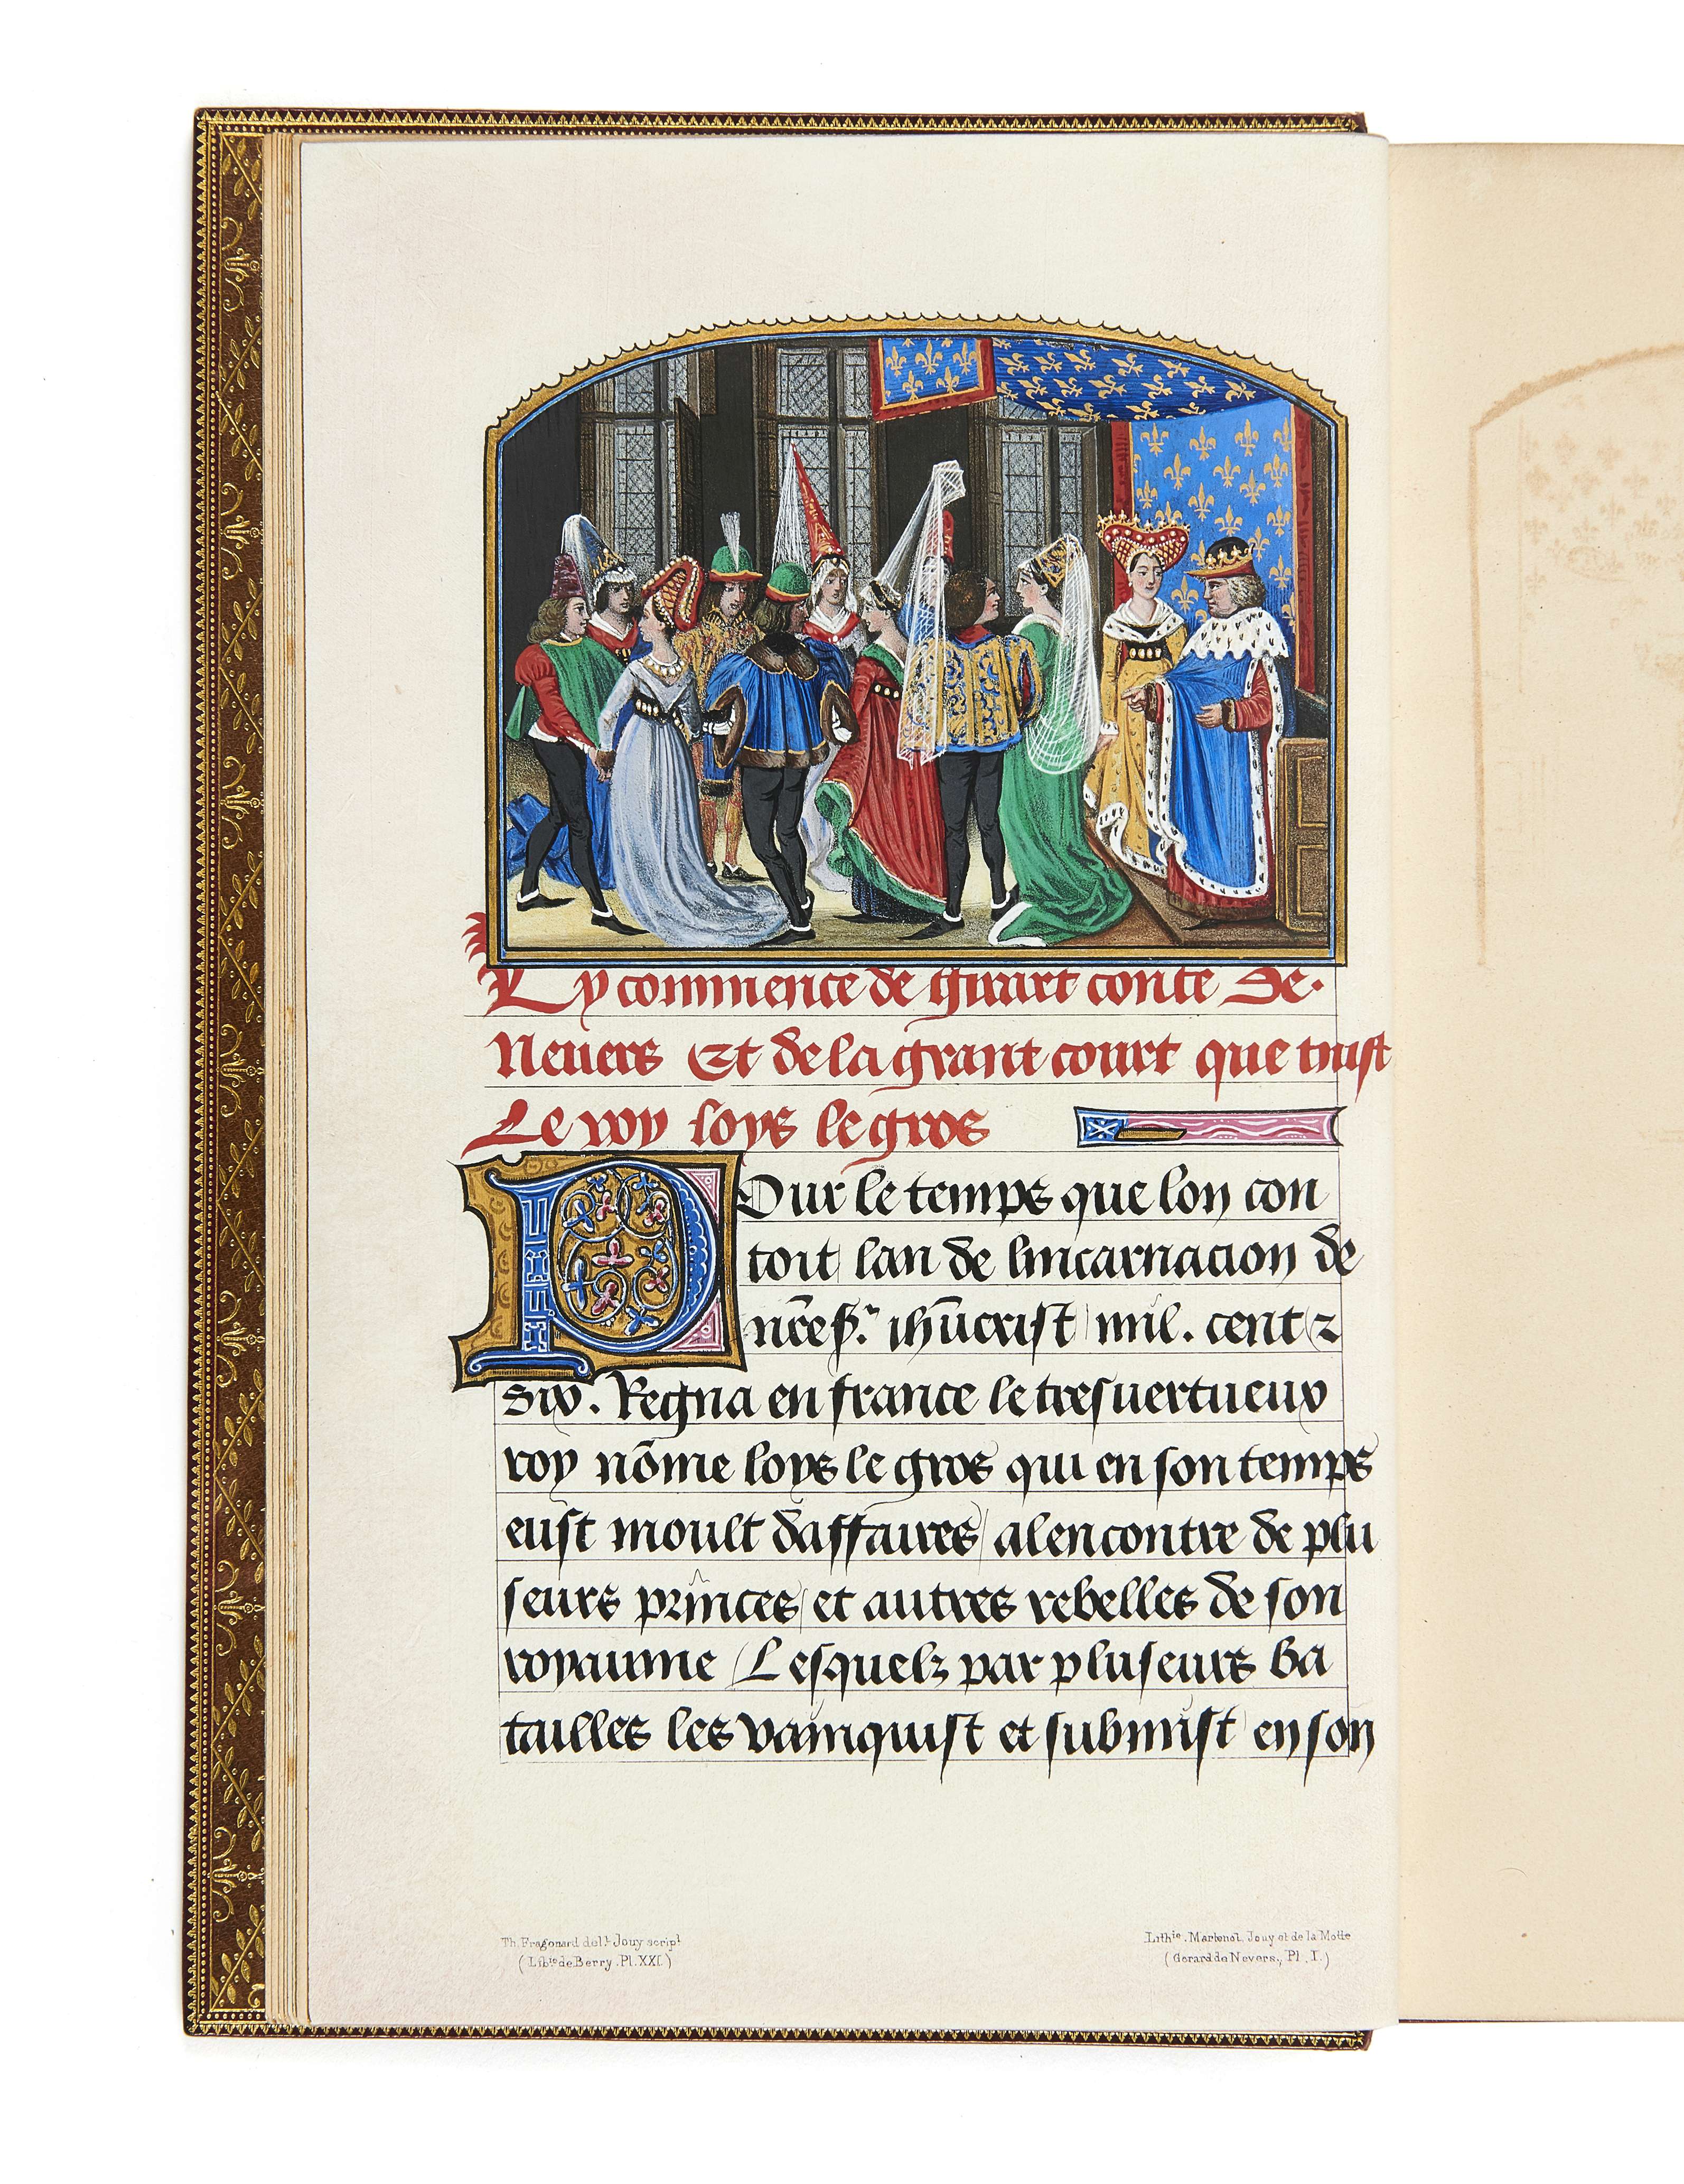 Cy commence de girart conte de.
Neuers Et de la grant court que tinst
Le roy loys le gros
Pour le temps que lon con
toit lan de lincarnacion de
ihũcrist mil. cent ⁊
Six. Regna en france le tresuertueux
roy nõme loys le gros qui en son temps
eust moult daffaires / alencontre de plu
seurs princes / et autres rebelles de son
royaume / Lesquelz par pluseurs ba
tailles les vainquist et submist en son
Th. Fragonard del.t Jouy script
(Lib.ie de Berry. Pl. XXI.)
Lith.ie Martenot, Jouy et de la Motte
(Gerard de Nevers., Pl. I.)